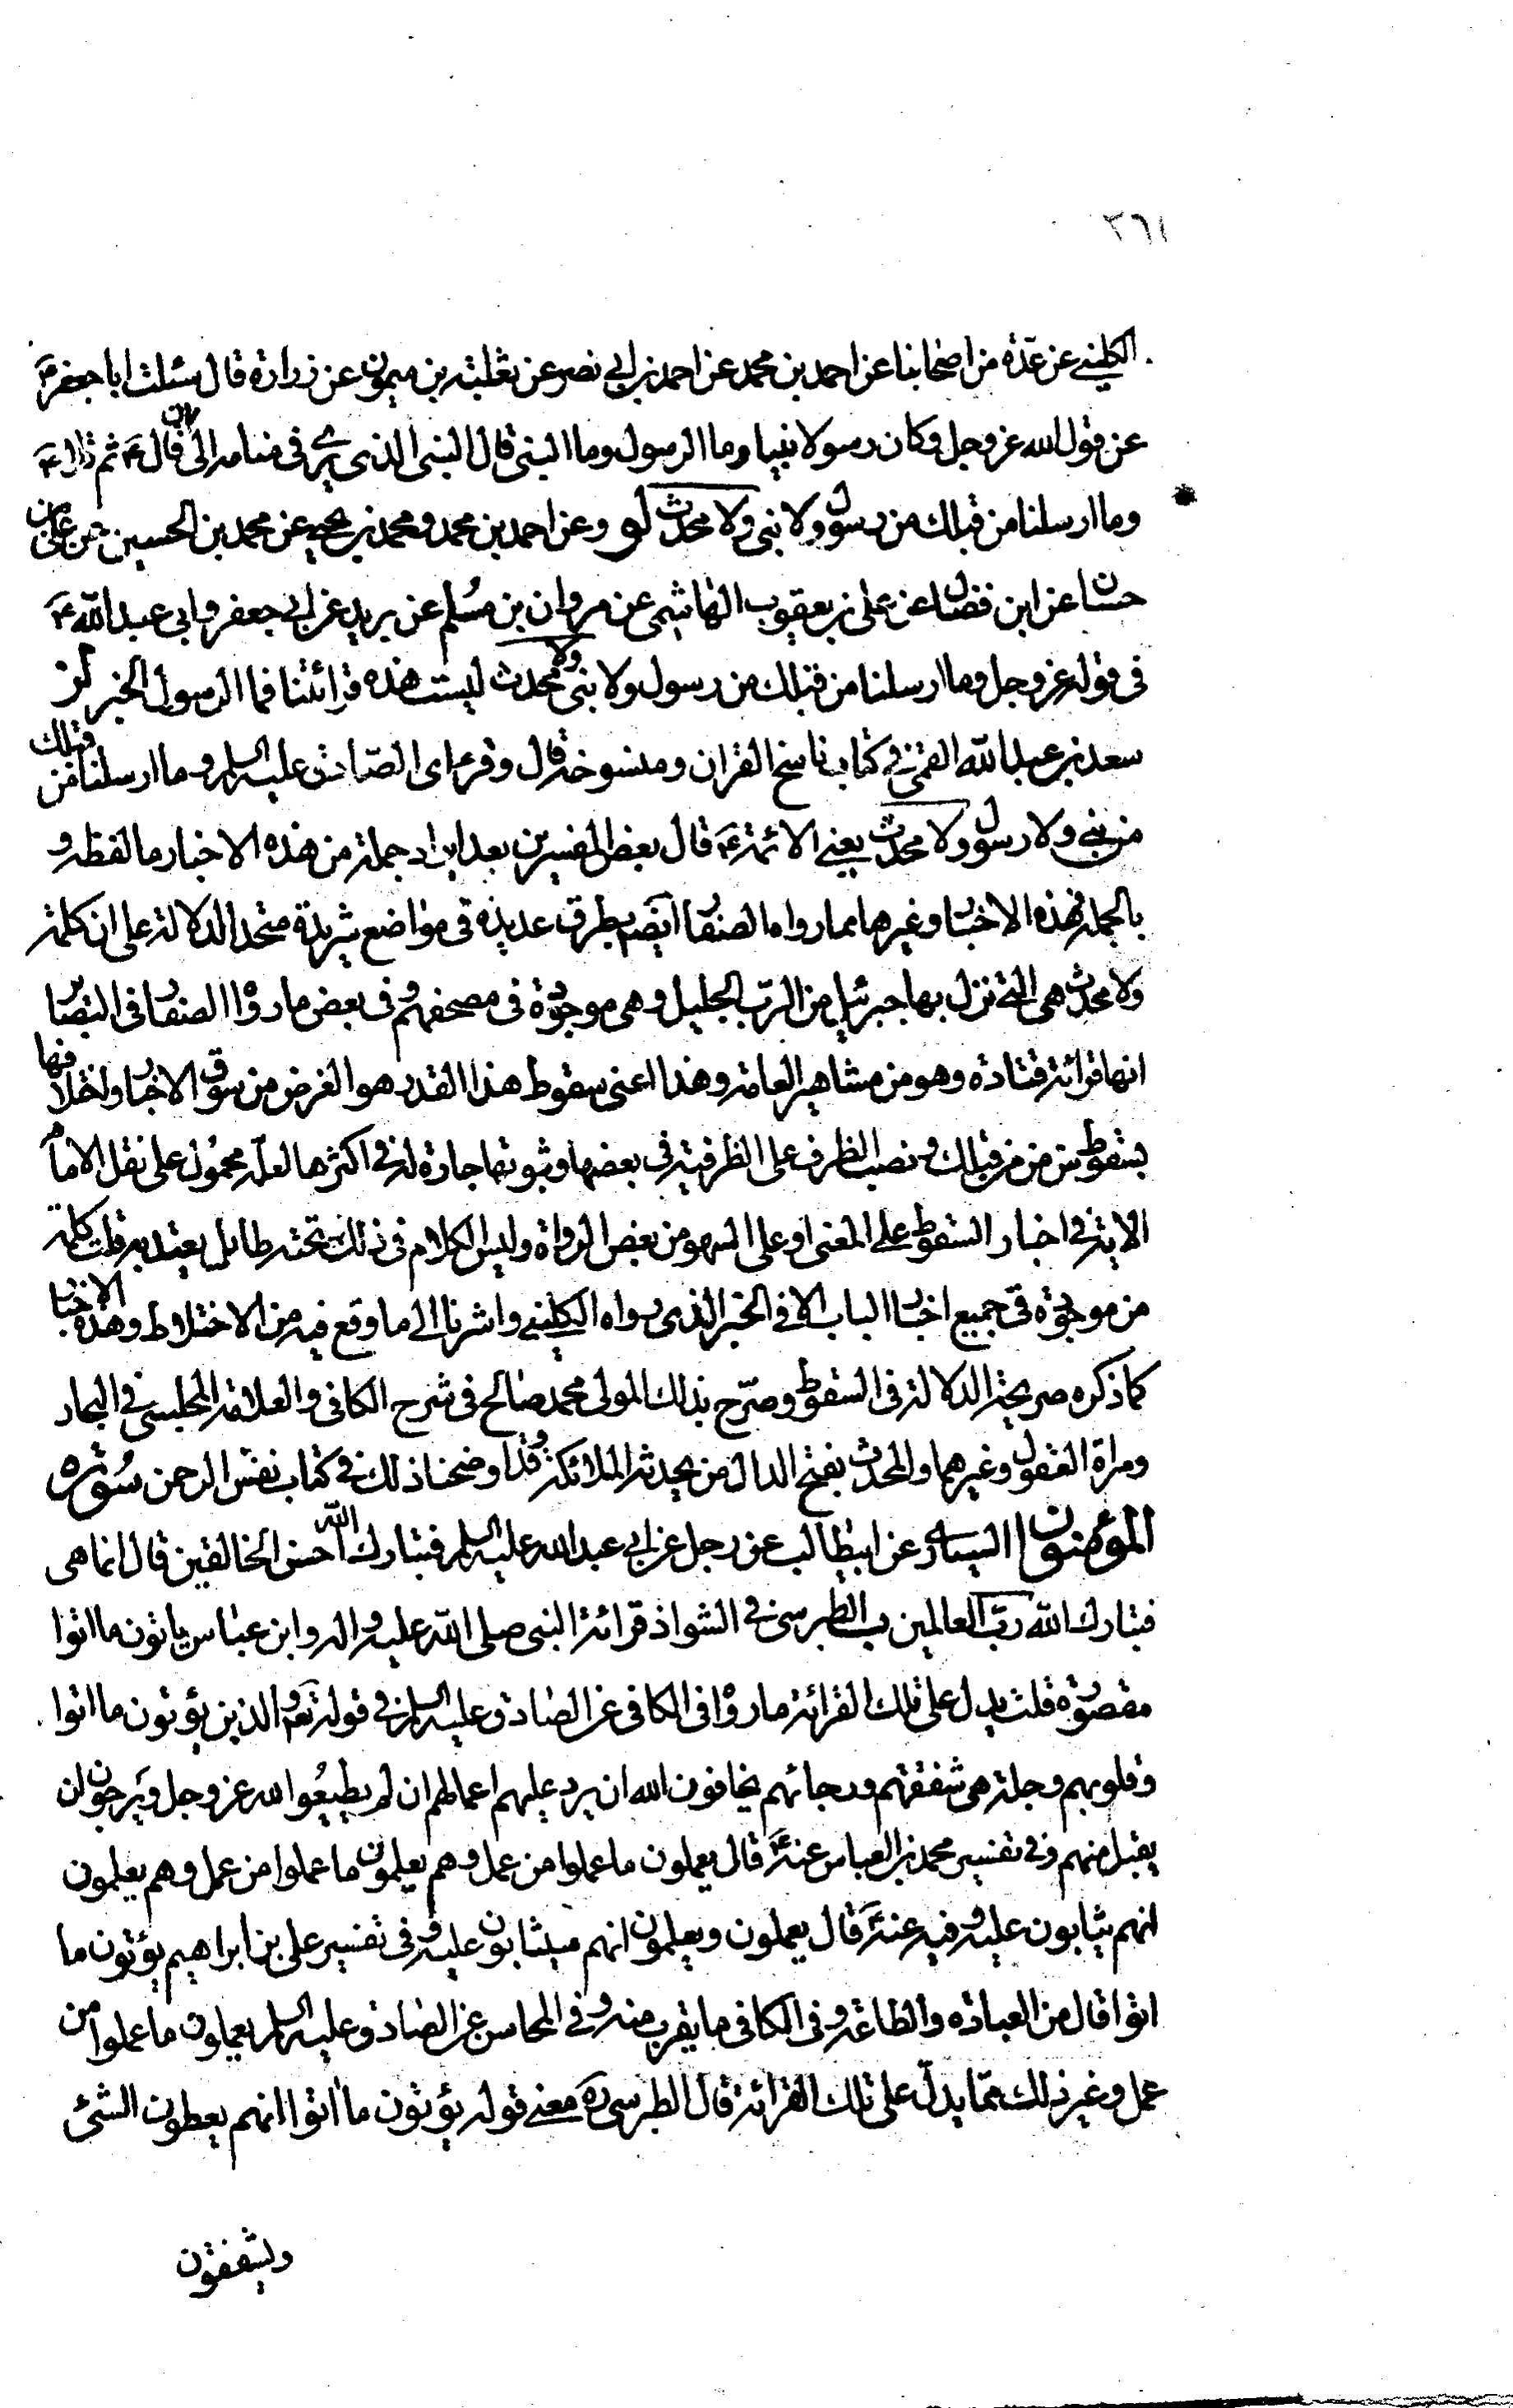 ٣٦١
الكليني عن عدة من اصحابنا عن احمد بن محمد عن احمد بن ابي نصر عن ثعلبة بن ميمون عن زرارة قال سئلت ابا جعفر ع
عن قول الله عز وجل وكان رسولا نبيا وما الرسول وما النبي قال النبي الذي يرى في منامه الى ان قال ع ثم تلا ع
وما ارسلنا من قبلك من رسول ولا نبي ولا محدث لو وعن احمد بن محمد ومحمد بن يحيى عن محمد بن الحسين عن على بن
حسان عن ابن فضال عن على بن يعقوب الهاشمي عن مروان بن مسلم عن بريد عن ابي جعفر وابي عبد الله ع
في قوله عز وجل وما ارسلنا من قبلك من رسول ولا نبي ولا محدث ليست هذه قرائتنا فما الرسول الخبر لز
سعد بن عبد الله القمي في كتاب ناسخ القران ومنسوخه قال وقرء اى الصادق عليه السلم وما ارسلنا من قبلك
من نبي ولا رسول ولا محدث يعني الائمة ع قال بعض المفسرين بعد ايراد جملة من هذه الاخبار ما لفظه و
بالجملة فهذه الاخبار وغيرها مما رواه الصفار ايضا بطرق عديدة في مواضع شريدة متحد الدلالة على ان كلمة
ولا محدث هى التي نزل بها جبرئيل من الرب الجليل وهى موجودة في مصحفهم وفي بعض ما رواه الصفار في البصائر
انها قرائة قتادة وهو من مشاهير العامة وهذا اعنى سقوط هذا القدر هو الغرض من سوق الاخبار واختلافها
بسقوط من من من قبلك ونصب الظرف على الظرفية في بعضها وثبوتها جارة له في اكثرها لعله محمول على نقل الامام
الاية في اخبار السقوط على المعنى او على السهو من بعض الرواة وليس الكلام في ذلك تحته طايل يعتد به قلت كلمة
من موجودة في جميع اخبار الباب الا في الخبر الذى رواه الكليني واشرنا الى ما وقع فيه من الاختلاط وهذه الاخبار
كما ذكره صريحة الدلالة في السقوط وصرح بذلك المولى محمد صالح في شرح الكافي والعلامة المجلسي في البحار
ومراة العقول وغيرهما والمحدث بفتح الدال من يحدثه الملائكة وقد اوضحنا ذلك في كتاب نفس الرحمن سورة
المؤمنون ا السياري عن ابيطالب عن رجل عن ابي عبد الله عليه السلم فتبارك الله احسن الخالقين قال انما هى
فتبارك الله رب العالمين ب الطبرسي في الشواذ قرائة النبي صلى الله عليه واله وابن عباس ياتون ما اتوا
مقصورة قلت يدل على تلك القرائة ما رواه في الكافي عن الصادق عليه السلم في قوله تعم والذين يؤتون ما اتوا
وقلوبهم وجلة هى شفقتهم ورجائهم يخافون الله ان يرد عليهم اعمالهم ان لم يطيعوا الله عز وجل ويرجون ان
يقبل منهم وفي تفسير محمد بن العباس عنه ع قال يعملون ما عملوا من عمل وهم يعلمون ما عملوا من عمل وهم يعلمون
انهم يثابون عليه وفيه عنه ع قال يعملون ويعلمون انهم سيثابون عليه وفي تفسير على بن ابراهيم يؤتون ما
اتوا قال من العبادة والطاعة وفي الكافي ما يقرب منه وفي المحاسن عن الصادق عليه السلم يعملون ما عملوا من
عمل وغير ذلك مما يدل على تلك القرائة قال الطبرسي ره معنى قوله يؤتون ما اتوا انهم يعطون الشئ
ويشفقون